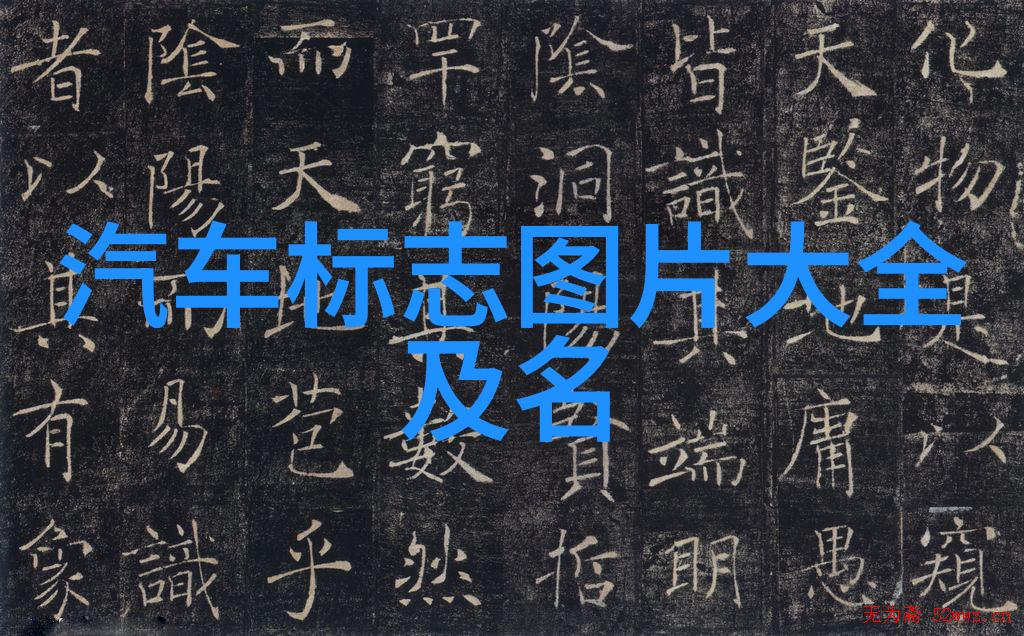 化物是以窺
天鑒地庸愚
皆識其端明
陰洞陽賢哲
罕窮其數然
而天地苞乎
陰陽而易識
者以其有象
汽车标志图片大全
及名
无为斋 52wwz.cn